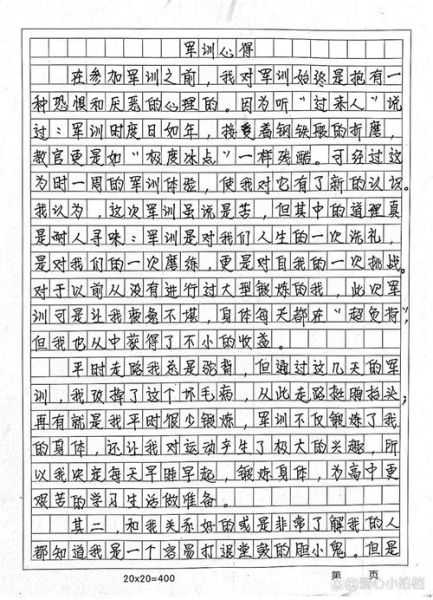 军训心得
在参加军训之前，我对军训始终是抱有一
种恐惧和厌恶的心理的。因为听“过来人”说
过：军训时度日如年，接受着钢铁般的折磨，
教官更是如“极度冰点”一样残酷。可经过这
为时一周的军训体验，使我对它有了新的认识。
我认为，这次军训虽说是苦，但其中的道理真
是耐人寻味：军训是对我们人生的一次洗礼，
是对我们的一次磨练，更是对自我的一次挑战。
对于以前从没有进行过大型锻炼的我，此次军
训可是让我疲惫不堪，身体每天都在“超负荷”，
但我也从中获得了不小的收益。
平时走路我总是驼背，但通过这几天的军
训，我改掉了这个坏毛病，从此走路挺胸抬头，
再有就是我平时很少锻炼，军训不仅锻炼了我
的身体，还让我对运动产生了极大的兴趣，所
以我决定每天早睡早起，锻炼身体，为高中更
艰苦的学习生活做准备。
其二，和我关系好的或是非常了解我的人
都知道我是一个容易打退堂鼓的胆小鬼。但是
20×20=400 第 页